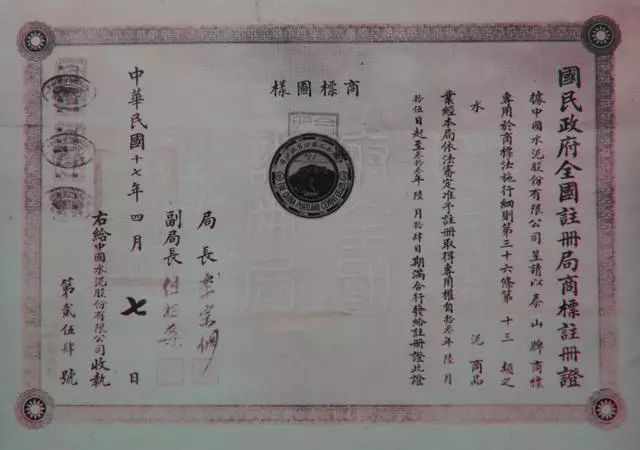 國民政府全國註冊局商標註冊證
據中國水泥股份有限公司呈請以泰山牌商標
專用於商標法施行細則第三十六條第十三類之
水泥商品
業經本局依法審定准予註冊取得專用權自拾叁年陸月
拾伍日起至叁拾叁年陸月拾肆日期滿合行發給註冊證此證
商標圖樣
THE CHINA PORTLAND CEMENT CO. LD.
局長
副局長
右給中國水泥股份有限公司收執
中華民國十七年四月七日
第貳伍肆號